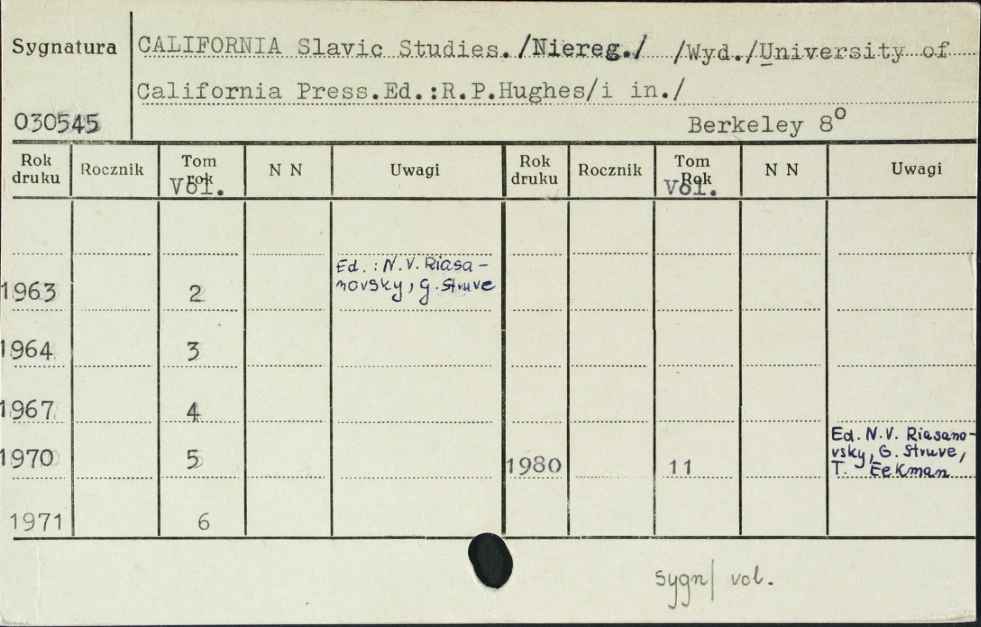 Sygnatura
CALIFORNIA Slavic Studies./Niereg./ /Wyd./University of
California Press.Ed.:R.P.Hughes/i in./
030545
Berkeley 8°
Rok druku Rocznik Tom rok Vol. N N Uwagi Rok druku Rocznik Tom Rok Vol. N N Uwagi
Ed.: N.V. Riasa-
1963 2 novsky, G. Struve
1964 3
1967 4
Ed. N.V. Riasano-
1970 5 1980 11 vsky, G. Struve,
T. Eekman
1971 6
sygn/ vol.